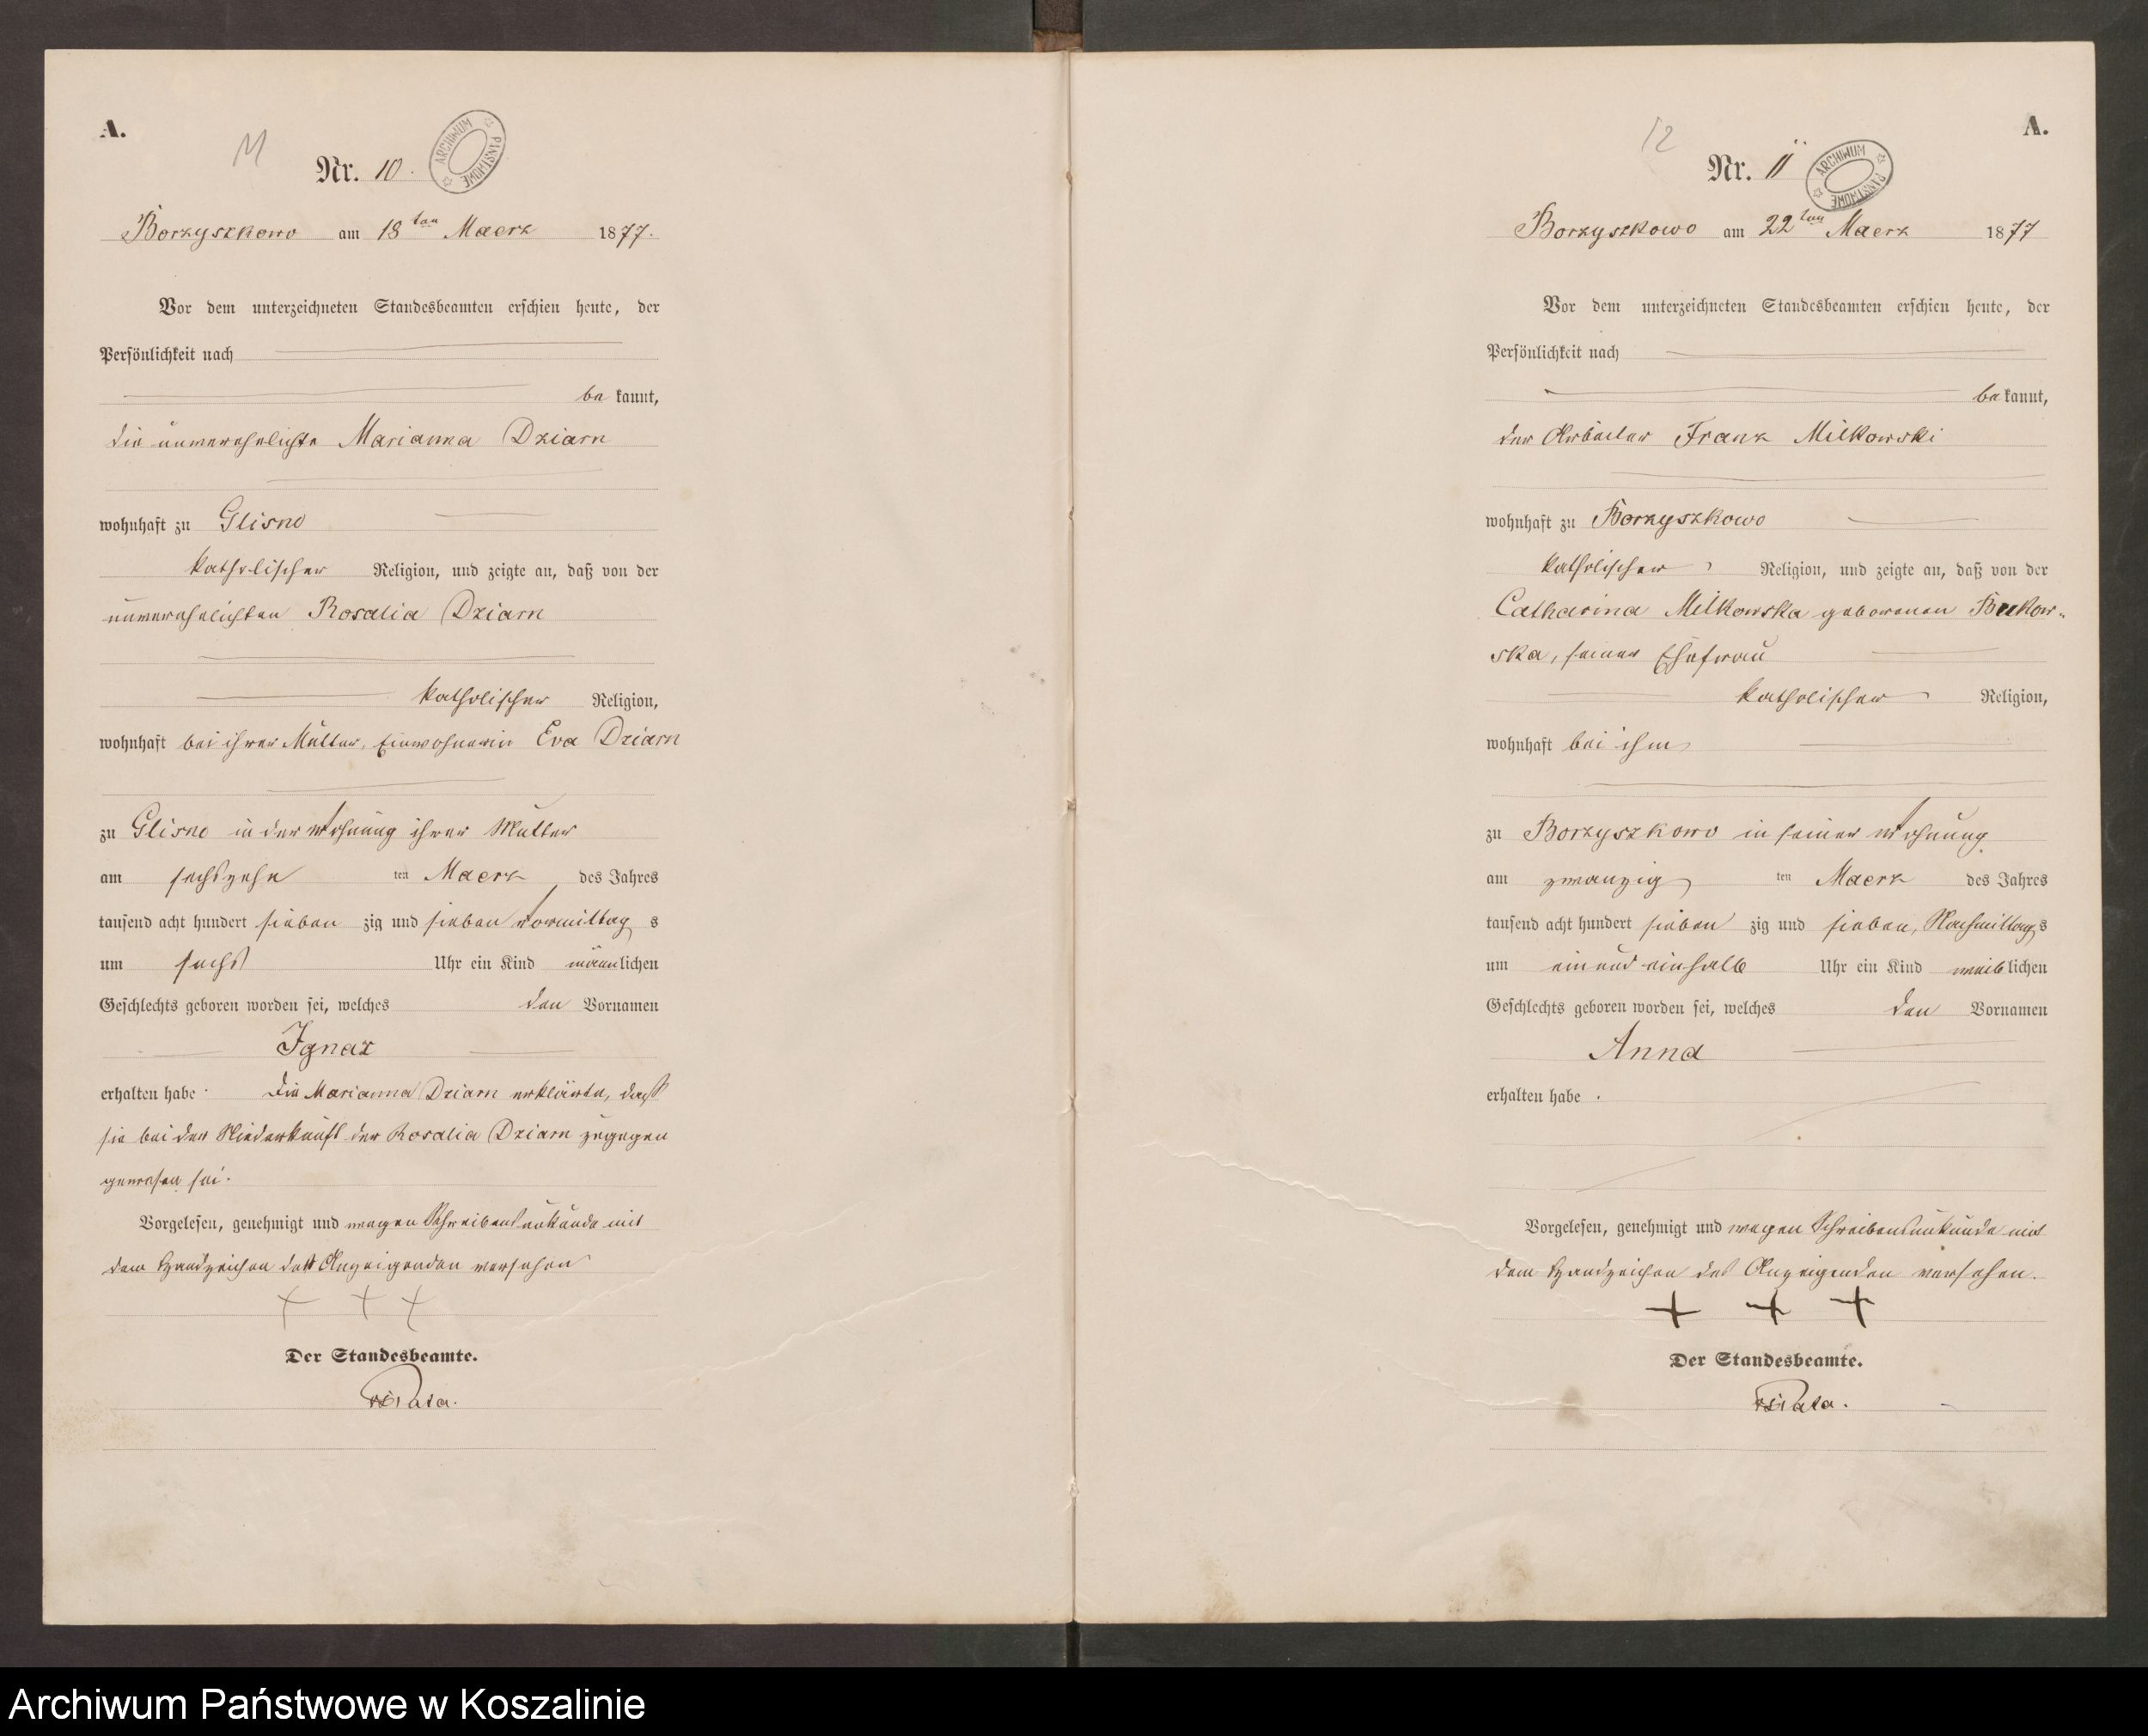 A.
11
Nr. 10.
ARCHIWUM PAŃSTWOWE
Borzyszkowo am 18ten Maerz 1877.
Vor dem unterzeichneten Standesbeamten erschien heute, der
Persönlichkeit nach
be kannt,
die unverehelichte Marianna Dziarn
wohnhaft zu Glisno
katholischer Religion, und zeigte an, daß von der
unverehelichten Rosalia Dziarn
katholischer Religion,
wohnhaft bei ihrer Mutter, Einwohnerin Eva Dziarn
zu Glisno in der Wohnung ihrer Mutter
am sechszehn ten Maerz des Jahres
tausend acht hundert sieben zig und sieben Vormittag s
um sechs Uhr ein Kind männ lichen
Geschlechts geboren worden sei, welches den Vornamen
Ignaz
erhalten habe. Die Marianna Dziarn erklärte, dass
sie bei der Niederkunft der Rosalia Dziarn zugegen
gewesen sei.
Vorgelesen, genehmigt und wegen Schreibensunkunde mit
dem Handzeichen des Anzeigenden versehen
+ + +
Der Standesbeamte.
A.
12
Nr. 11
ARCHIWUM PAŃSTWOWE
Borzyszkowo am 22ten Maerz 1877
Vor dem unterzeichneten Standesbeamten erschien heute, der
Persönlichkeit nach
be kannt,
der Arbeiter Franz Milkowski
wohnhaft zu Borzyszkowo
katholischer Religion, und zeigte an, daß von der
Catharina Milkowska geborenen Bukow-
ska, seiner Ehefrau
katholischer Religion,
wohnhaft bei ihm
zu Borzyszkowo in seiner Wohnung
am zwanzig ten Maerz des Jahres
tausend acht hundert sieben zig und sieben, Nachmittag s
um ein und einhalb Uhr ein Kind weib lichen
Geschlechts geboren worden sei, welches den Vornamen
Anna
erhalten habe.
Vorgelesen, genehmigt und wegen Schreibensunkunde mit
dem Handzeichen des Anzeigenden versehen.
+ + +
Der Standesbeamte.
Archiwum Państwowe w Koszalinie